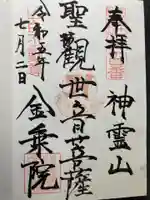 奉拝
神霊山
聖觀世音菩薩
金乗院
令和五年
七月二日